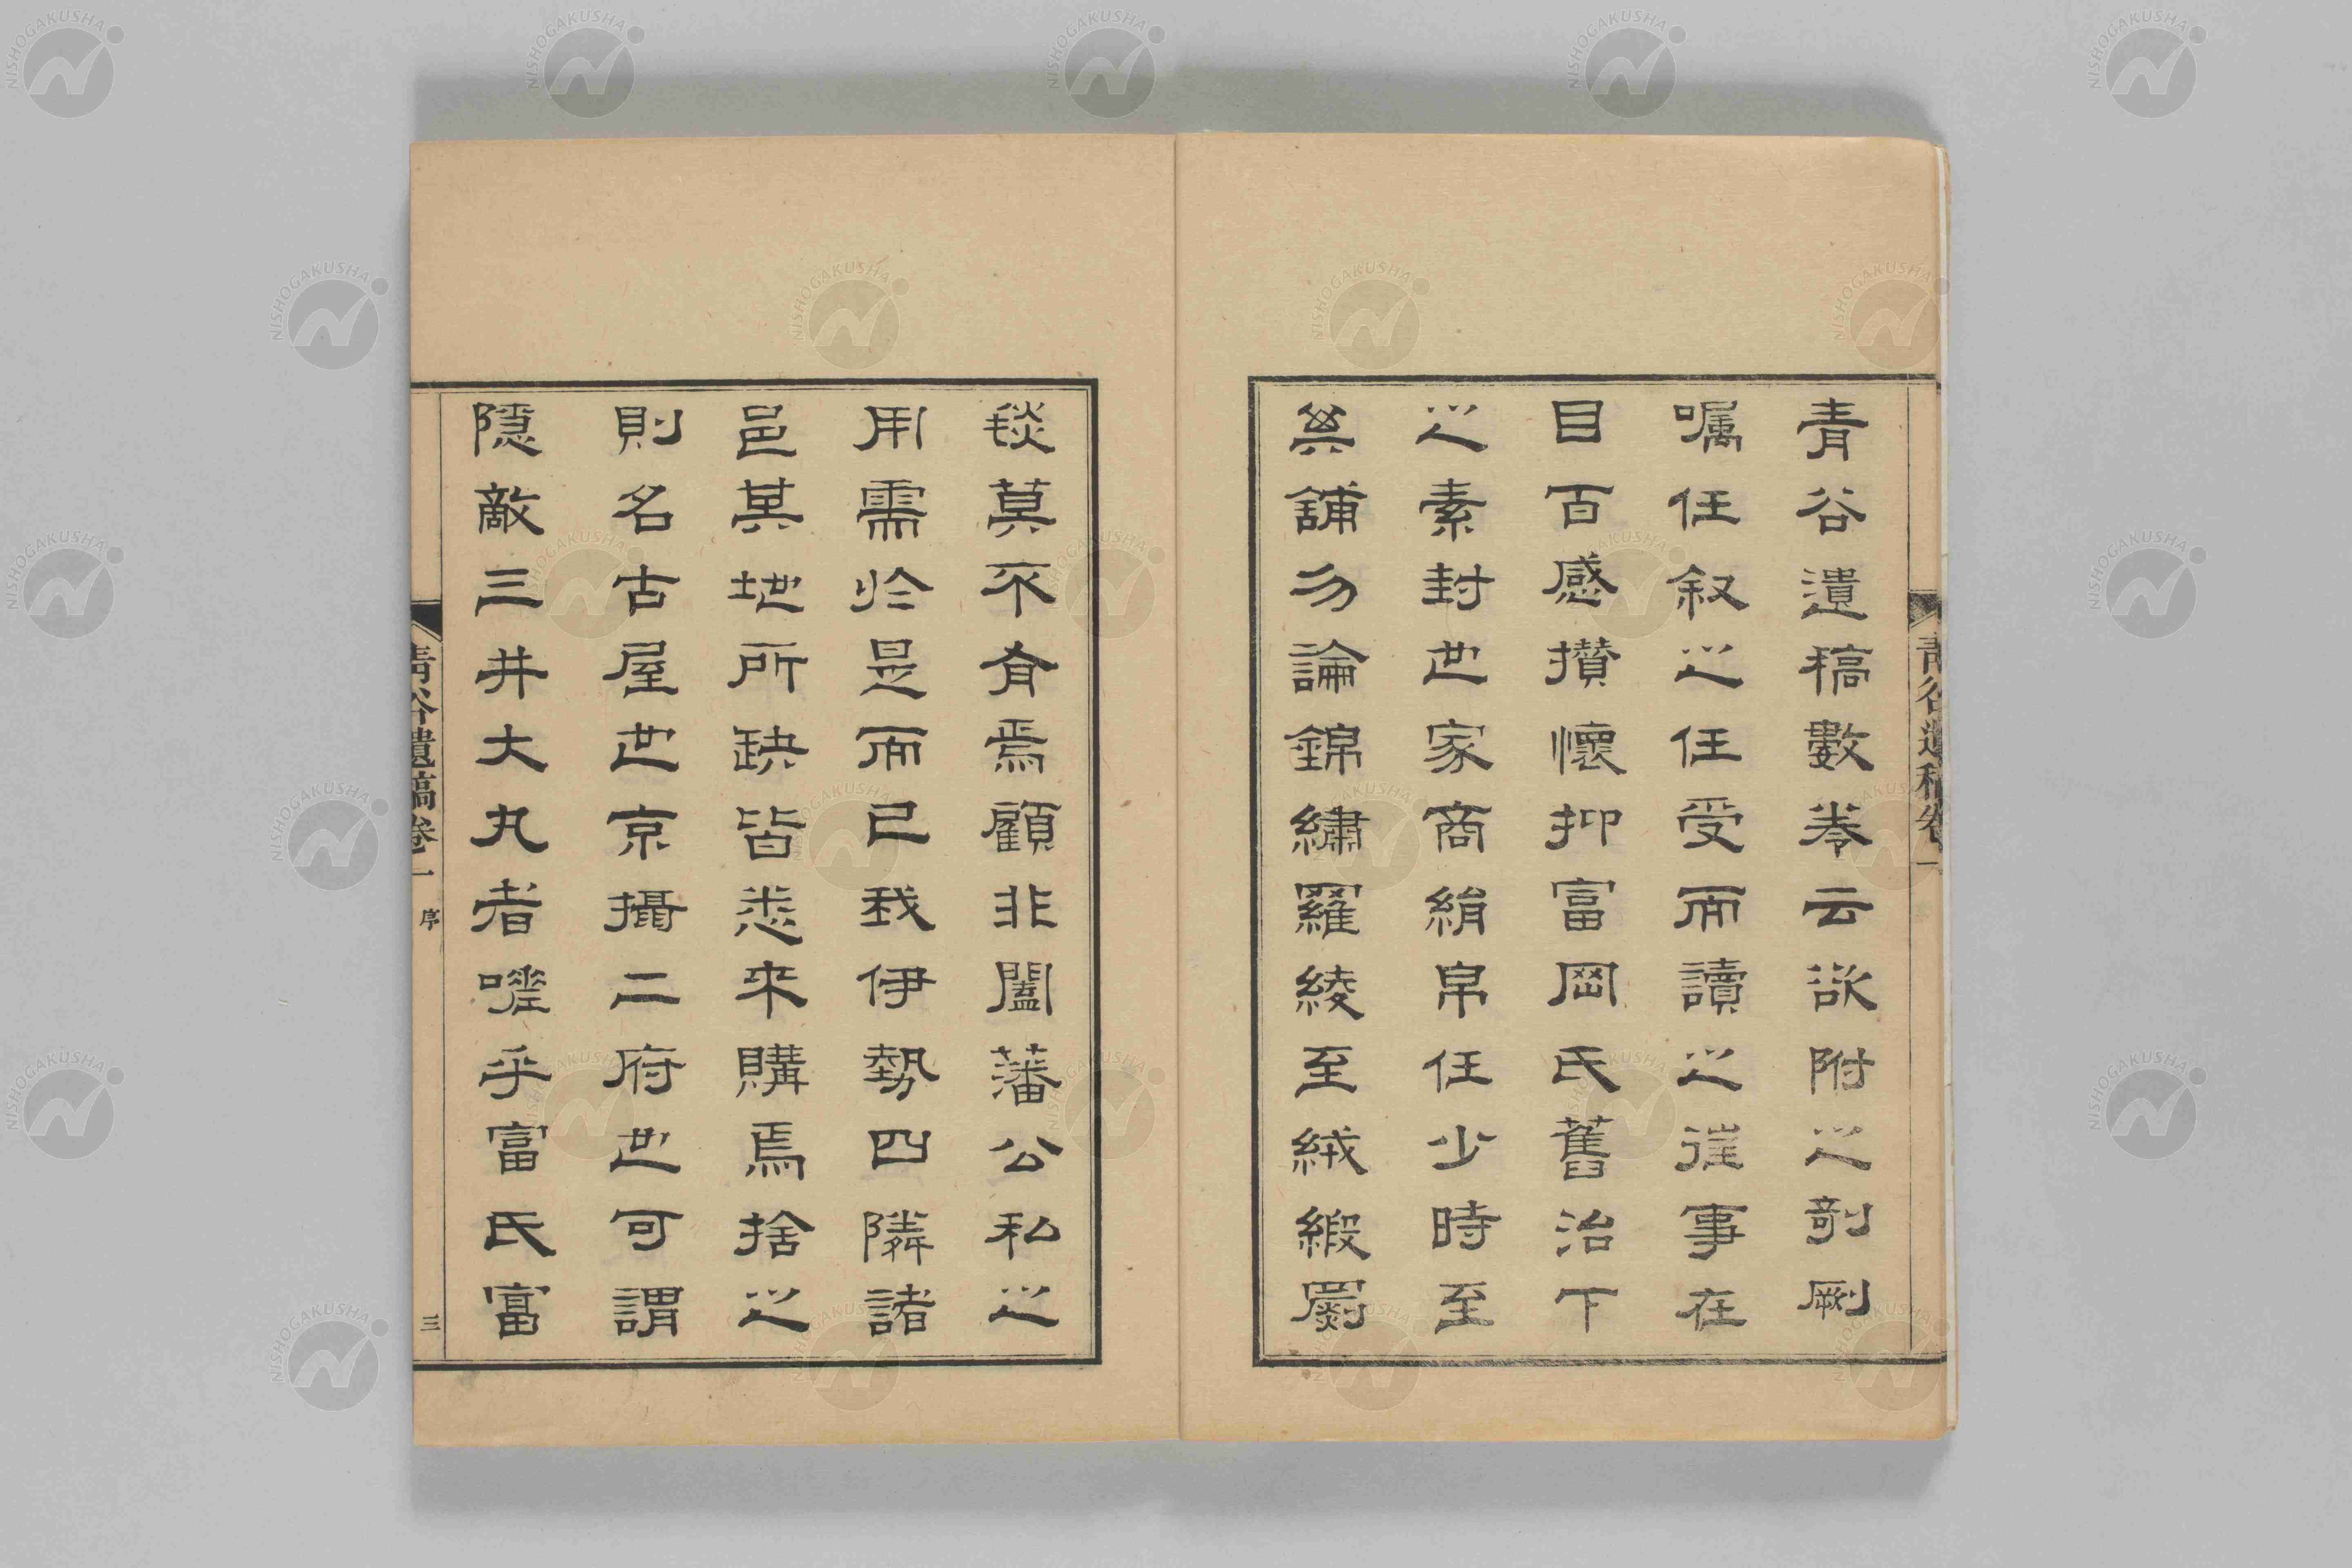 青谷遺稿卷一
青谷遺稿數卷云欲附之剞劂
囑任叙之任受而讀之往事在
目百感攢懷抑富岡氏舊治下
之素封世家商絹帛任少時至
其舖勿論錦繡羅綾至絨緞罽
毯莫不有焉顧非闔藩公私之
用需於是而已我伊勢四隣諸
邑其地所缺皆悉來購焉捨之
則名古屋也京攝二府也可謂
隱敵三井大丸者嗟乎富氏富
青谷遺稿卷一 序 三
NISHOGAKUSHA